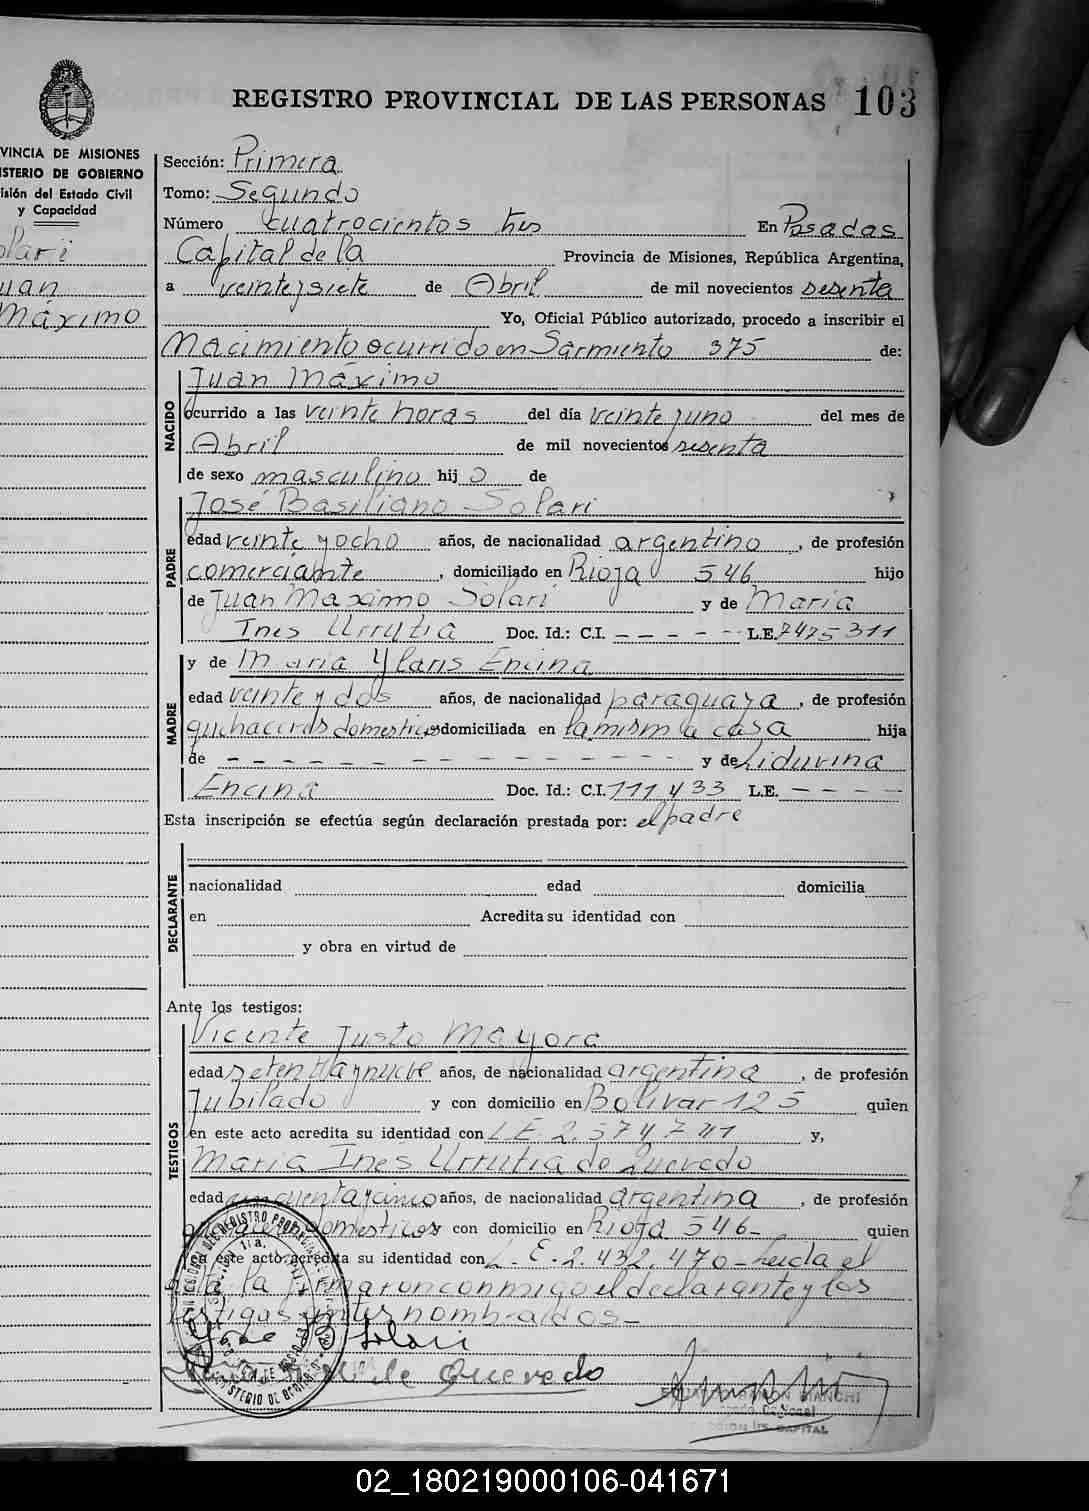 REGISTRO PROVINCIAL DE LAS PERSONAS 103
VINCIA DE MISIONES
ISTERIO DE GOBIERNO
isión del Estado Civil
y Capacidad
olari
uan
Máximo
Sección: Primera
Tomo: Segundo
Número cuatrocientos tres En Posadas
Capital de la Provincia de Misiones, República Argentina,
a veintejsiete de Abril de mil novecientos sesenta
Yo, Oficial Público autorizado, procedo a inscribir el
Nacimiento ocurrido en Sarmiento 375 de:
NACIDO
Juan Máximo
ocurrido a las veinte horas del día veintejuno del mes de
Abril de mil novecientos sesenta
de sexo masculino hij o de
PADRE
José Basiliano Solari
edad veinte y ocho años, de nacionalidad argentino, de profesión
comerciante, domiciliado en Rioja 546 hijo
de Juan Maximo Solari y de Maria
Ines Urrutia Doc. Id.: C.I. - - - - - - L.E. 7475311
MADRE
y de Maria Ylaris Encina
edad veinte y dos años, de nacionalidad paraguaya, de profesión
quehaceres domesticos domiciliada en la misma casa hija
de - - - - - - - - - - - - - - y de Liduvina
Encina Doc. Id.: C.I. 111433 L.E. - - - -
Esta inscripción se efectúa según declaración prestada por: el padre
DECLARANTE
nacionalidad edad domicilia
en Acredita su identidad con
y obra en virtud de
Ante los testigos:
TESTIGOS
Vicente Justo Mayora
edad setentaynueve años, de nacionalidad argentina, de profesión
Jubilado y con domicilio en Bolivar 125 quien
en este acto acredita su identidad con L.E. 2.574741 y,
Maria Ines Urrutia de Quevedo
edad cincuentaycinco años, de nacionalidad argentina, de profesión
domesticos y con domicilio en Rioja 546- quien
en este acto acredita su identidad con L.E. 2.432.470-Leida el
acta la firmaron conmigo el declarante y los
testigos antes nombrados-
Jose B Solari
de Quevedo
BIANCHI
CAPITAL
02_180219000106-041671